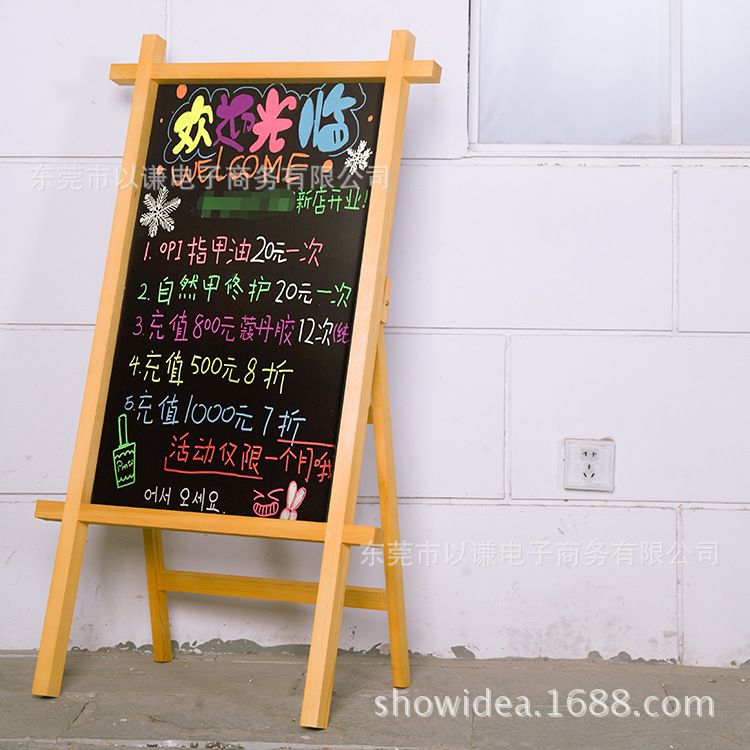 欢迎光临
WELCOME
东莞市以谦电子商务有限公司
新店开业!
1. OPI指甲油20元一次
2. 自然甲修护20元一次
3. 充值800元蔻丹胶12次(纯
4. 充值500元8折
5. 充值1000元7折
活动仅限一个月哦
어서 오세요.
东莞市以谦电子商务有限公司
showidea.1688.com